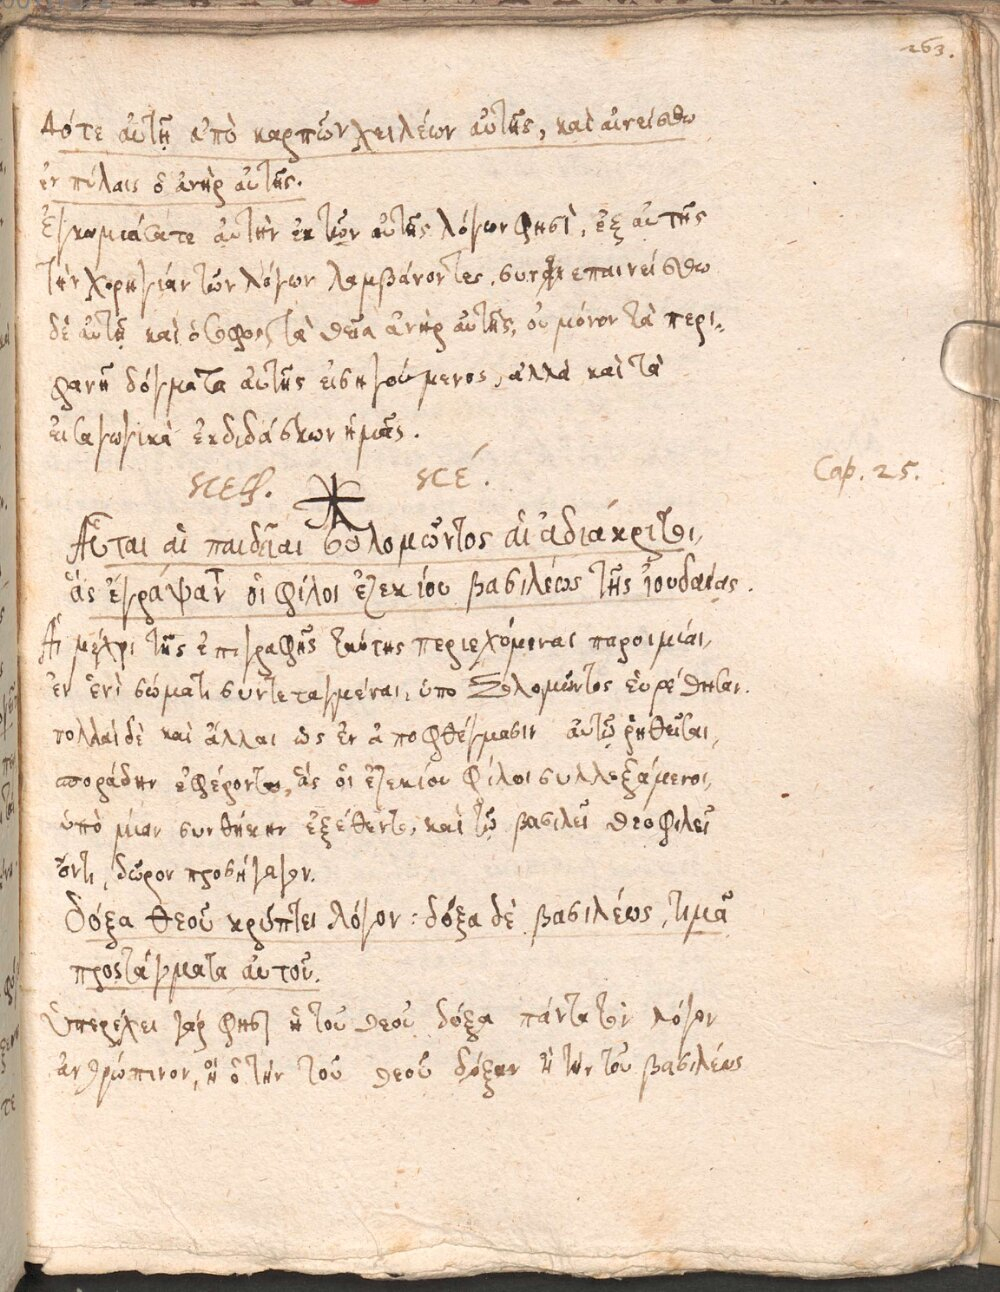 263.
Δότε αὐτῇ ἀπὸ καρπῶν χειλέων αὐτῆς, καὶ αἰνείσθω
ἐν πύλαις ὁ ἀνὴρ αὐτῆς.
Ἐγκωμιάσατε αὐτὴν ἐκ τῶν αὐτῆς λόγων φησὶ, ἐξ αὐτῆς
τὴν χορηγίαν τῶν λόγων λαμβάνοντες. ἐπαινείσθω
δὲ αὐτῇ καὶ ὁ σοφὸς τὰ θεῖα ἀνὴρ αὐτῆς, οὐ μόνον τὰ περι-
φανῆ δόγματα αὐτῆς εἰσηγούμενος, ἀλλὰ καὶ τὰ
εἰσαγωγικὰ ἐκδιδάσκων ἡμᾶς.
κεφ. κέ.
Cap. 25.
Αὗται αἱ παιδεῖαι σολομῶντος αἱ ἀδιάκριτοι,
ἃς ἐγράψαντο οἱ φίλοι ἐζεκίου βασιλέως τῆς ἰουδαίας.
Αἱ μέχρι τῆς ἐπιγραφῆς ταύτης περιεχόμεναι παροιμίαι,
ἐν ἑνὶ σώματι συντεταγμέναι, ὑπὸ Σολομῶντος εὑρέθησαν.
πολλαὶ δὲ καὶ ἄλλαι ὡς ἐν ἀποφθέγμασιν αὐτῷ ῥηθεῖσαι,
σποράδην ἐφέροντο, ἃς οἱ ἐζεκίου φίλοι συλλεξάμενοι,
ὑπὸ μίαν συνθήκην ἐξέθεντο, καὶ τῷ βασιλεῖ θεοφιλεῖ
ὄντι, δῶρον προσήγαγον.
Δόξα θεοῦ κρύπτει λόγον: δόξα δὲ βασιλέως, τιμᾷ
προστάγματα αὐτοῦ.
Ὑπερέχει γάρ φησὶ ἡ τοῦ θεοῦ δόξα πάντα τὸν λόγον
ἀνθρώπινον, ἢ ὁ τὴν τοῦ θεοῦ δόξαν ἢ τὴν τοῦ βασιλέως